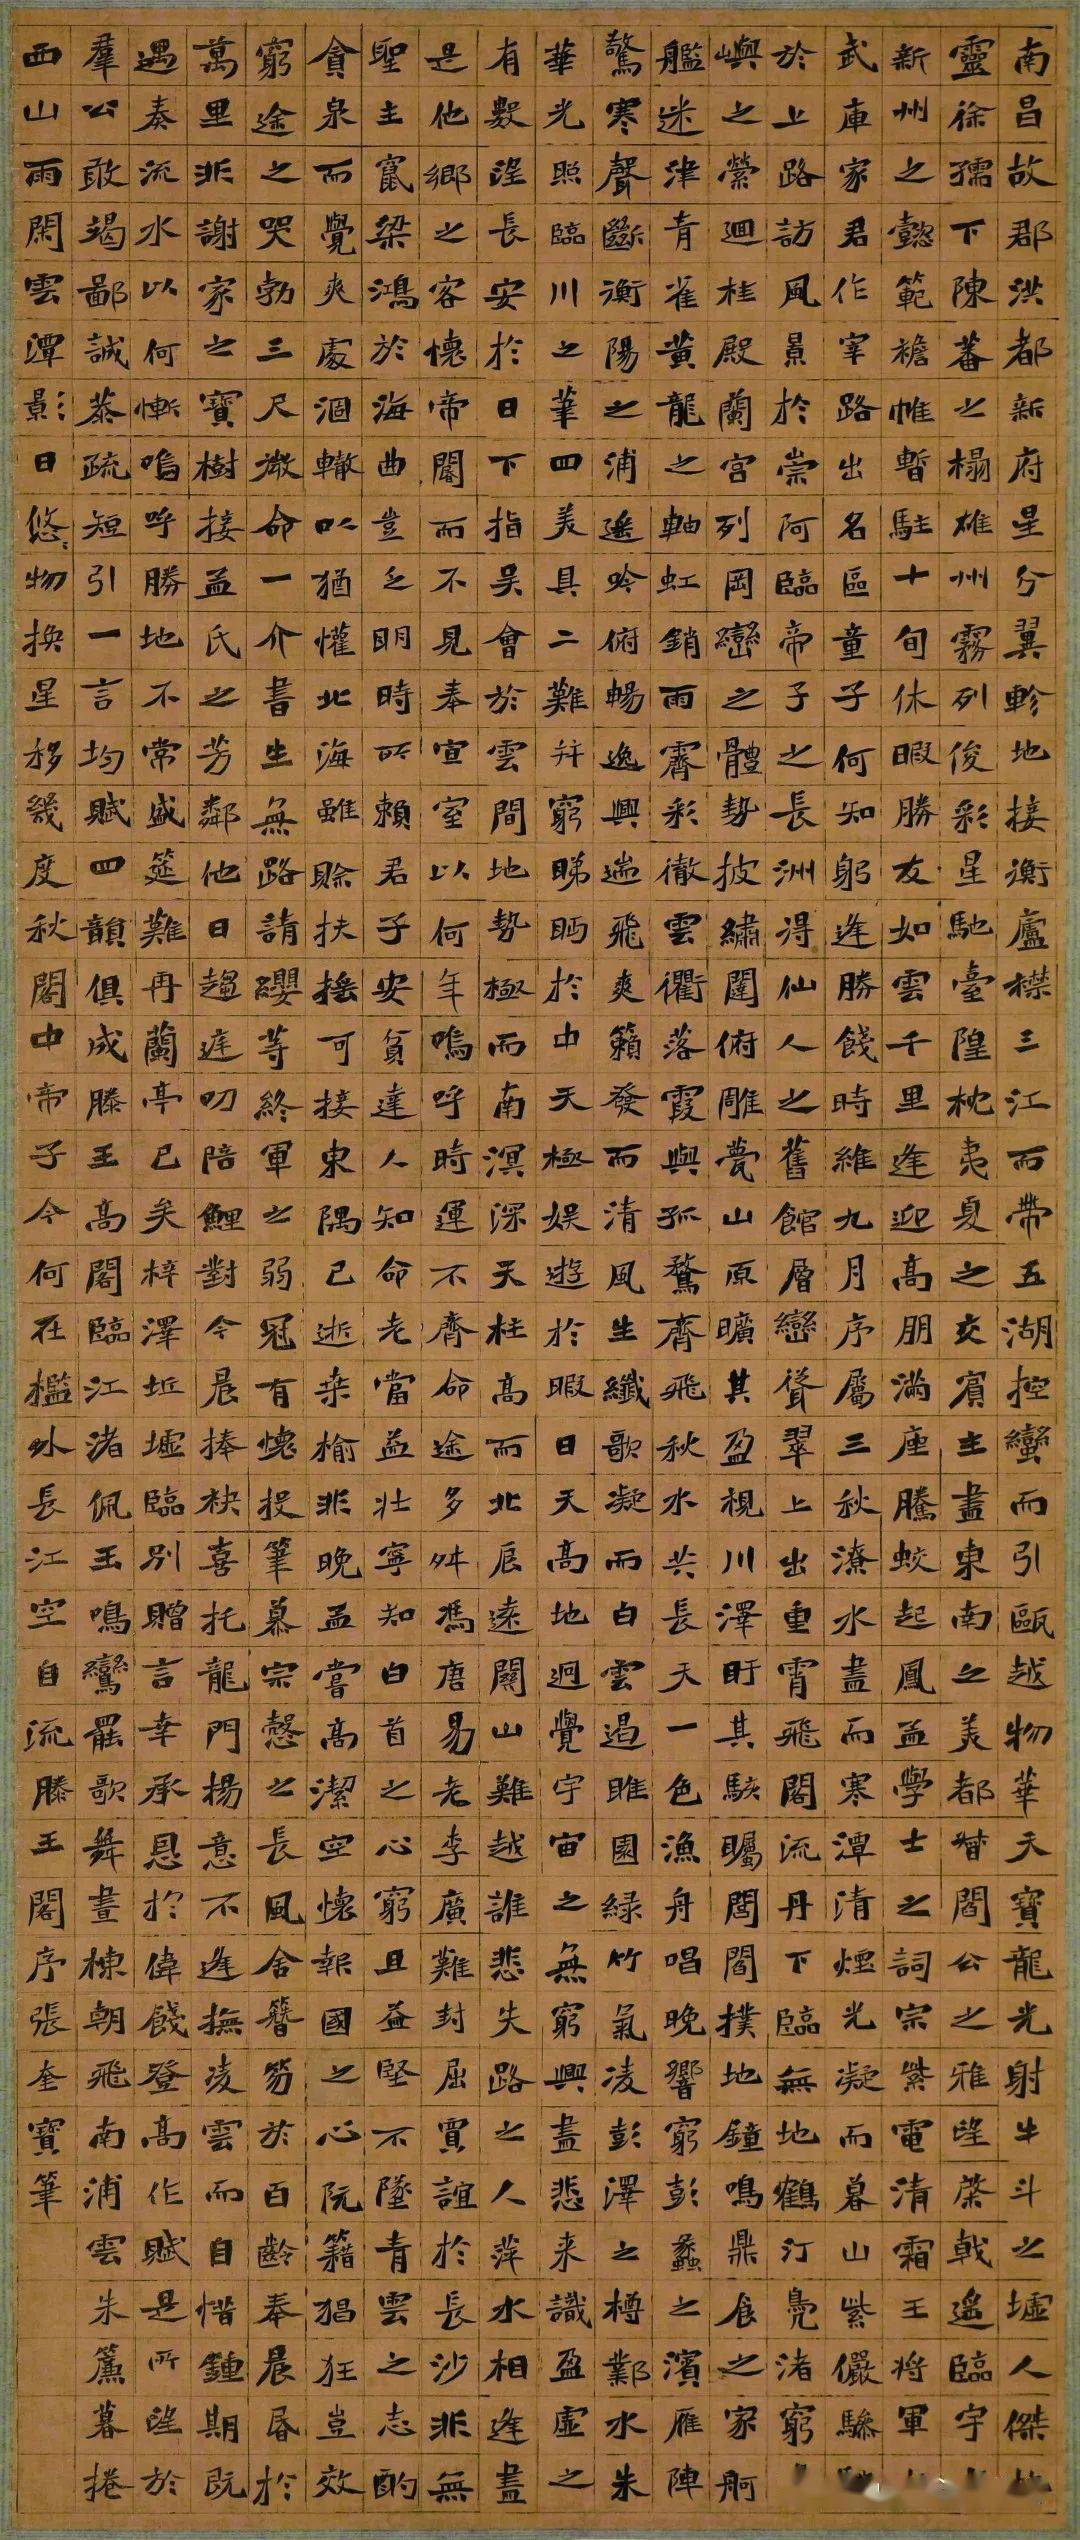 南昌故郡洪都新府星分翼軫地接衡廬襟三江而帶五湖控蠻而引甌越物華天寶龍光射牛斗之墟人傑
靈徐孺下陳蕃之榻雄州霧列俊彩星馳臺隍枕夷夏之交賓主盡東南之美都督閻公之雅望棨戟遙臨宇
新州之懿範襜帷暫駐十旬休暇勝友如雲千里逢迎高朋滿座騰蛟起鳳孟學士之詞宗紫電清霜王將軍
武庫家君作宰路出名區童子何知躬逢勝餞時維九月序屬三秋潦水盡而寒潭清煙光凝而暮山紫儼驂
於上路訪風景於崇阿臨帝子之長洲得仙人之舊館層巒聳翠上出重霄飛閣流丹下臨無地鶴汀鳧渚窮
嶼之縈迴桂殿蘭宮列岡巒之體勢披繡闥俯雕甍山原曠其盈視川澤盱其駭矚閭閻撲地鐘鳴鼎食之家舸
艦迷津青雀黃龍之軸虹銷雨霽彩徹雲衢落霞與孤鶩齊飛秋水共長天一色漁舟唱晚響窮彭蠡之濱雁陣
驚寒聲斷衡陽之浦遙吟俯暢逸興遄飛爽籟發而清風生纖歌凝而白雲遏睢園綠竹氣凌彭澤之樽鄴水朱
華光照臨川之筆四美具二難并窮睇眄於中天極娛遊於暇日天高地迥覺宇宙之無窮興盡悲來識盈虛之
有數望長安於日下指吳會於雲間地勢極而南溟深天柱高而北辰遠關山難越誰悲失路之人萍水相逢盡
是他鄉之客懷帝閽而不見奉宣室以何年嗚呼時運不齊命途多舛馮唐易老李廣難封屈賈誼於長沙非無
聖主竄梁鴻於海曲豈乏明時所賴君子安貧達人知命老當益壯寧知白首之心窮且益堅不墜青雲之志酌
貪泉而覺爽處涸轍以猶懽北海雖賒扶搖可接東隅已逝桑榆非晚孟嘗高潔空懷報國之心阮籍猖狂豈效
窮途之哭勃三尺微命一介書生無路請纓等終軍之弱冠有懷投筆慕宗愨之長風舍簪笏於百齡奉晨昏於
萬里非謝家之寶樹接孟氏之芳鄰他日趨庭叨陪鯉對今晨捧袂喜托龍門揚意不逢撫凌雲而自惜鍾期既
遇奏流水以何慚嗚呼勝地不常盛筵難再蘭亭已矣梓澤坵墟臨別贈言幸承恩於偉餞登高作賦是所望於
羣公敢竭鄙誠恭疏短引一言均賦四韻俱成滕王高閣臨江渚佩玉鳴鸞罷歌舞畫棟朝飛南浦雲朱簾暮捲
西山雨閑雲潭影日悠〻物換星移幾度秋閣中帝子今何在檻外長江空自流滕王閣序張奎寶筆